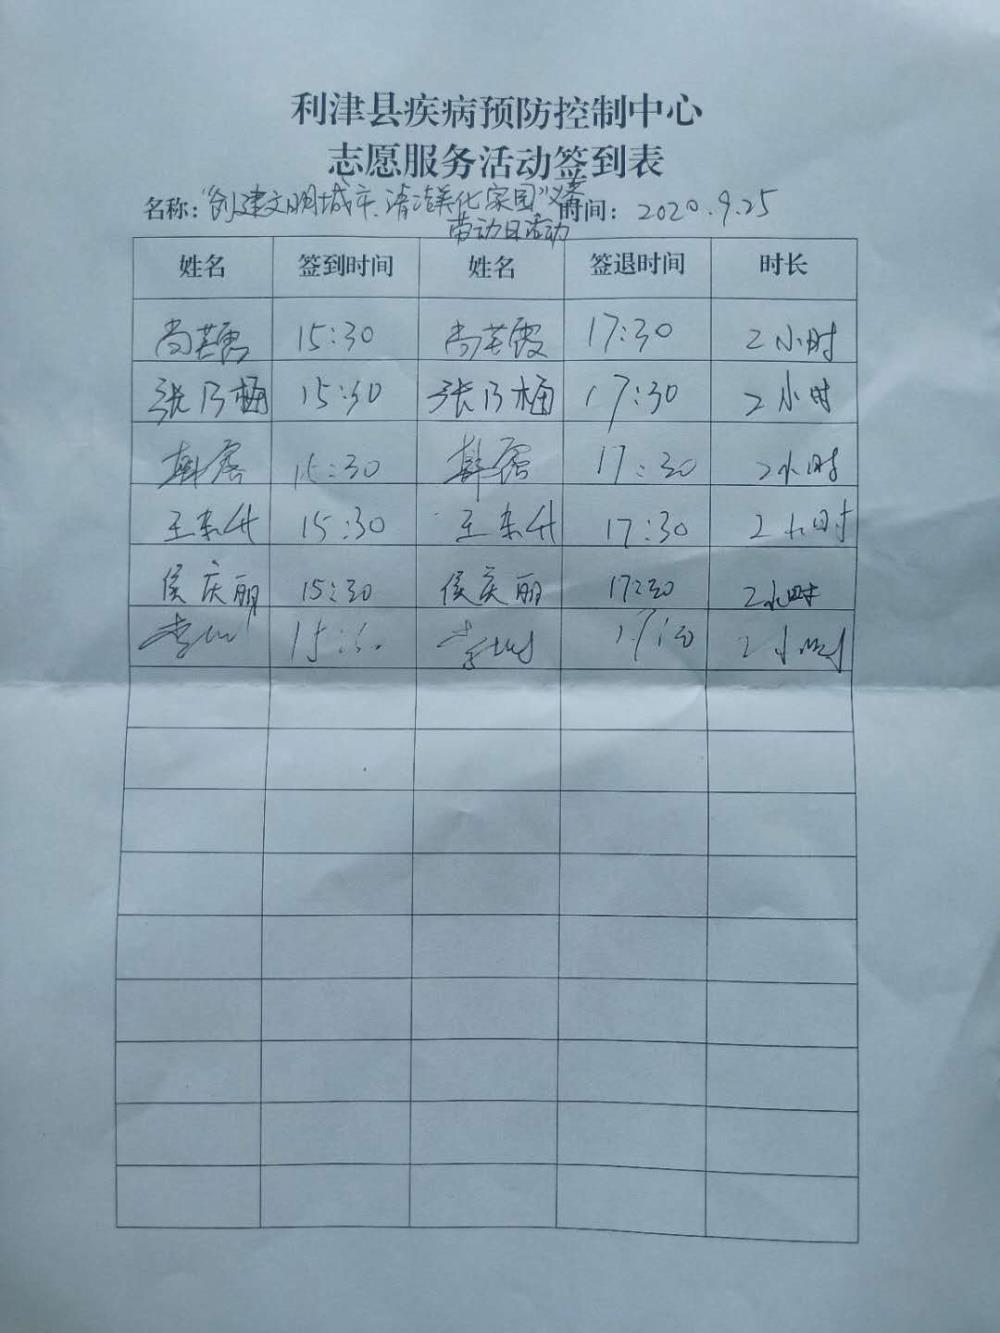 利津县疾病预防控制中心
志愿服务活动签到表
名称：“创建文明城市、清洁美化家园”义务 时间：2020.9.25
劳动日活动
姓名 签到时间 姓名 签退时间 时长
尚芸霞 15:30 尚芸霞 17:30 2小时
张乃楠 15:30 张乃楠 17:30 2小时
韩露 15:30 韩露 17:30 2小时
王东升 15:30 王东升 17:30 2小时
侯庆丽 15:30 侯庆丽 17:30 2小时
李 15:30 李 17:30 2小时